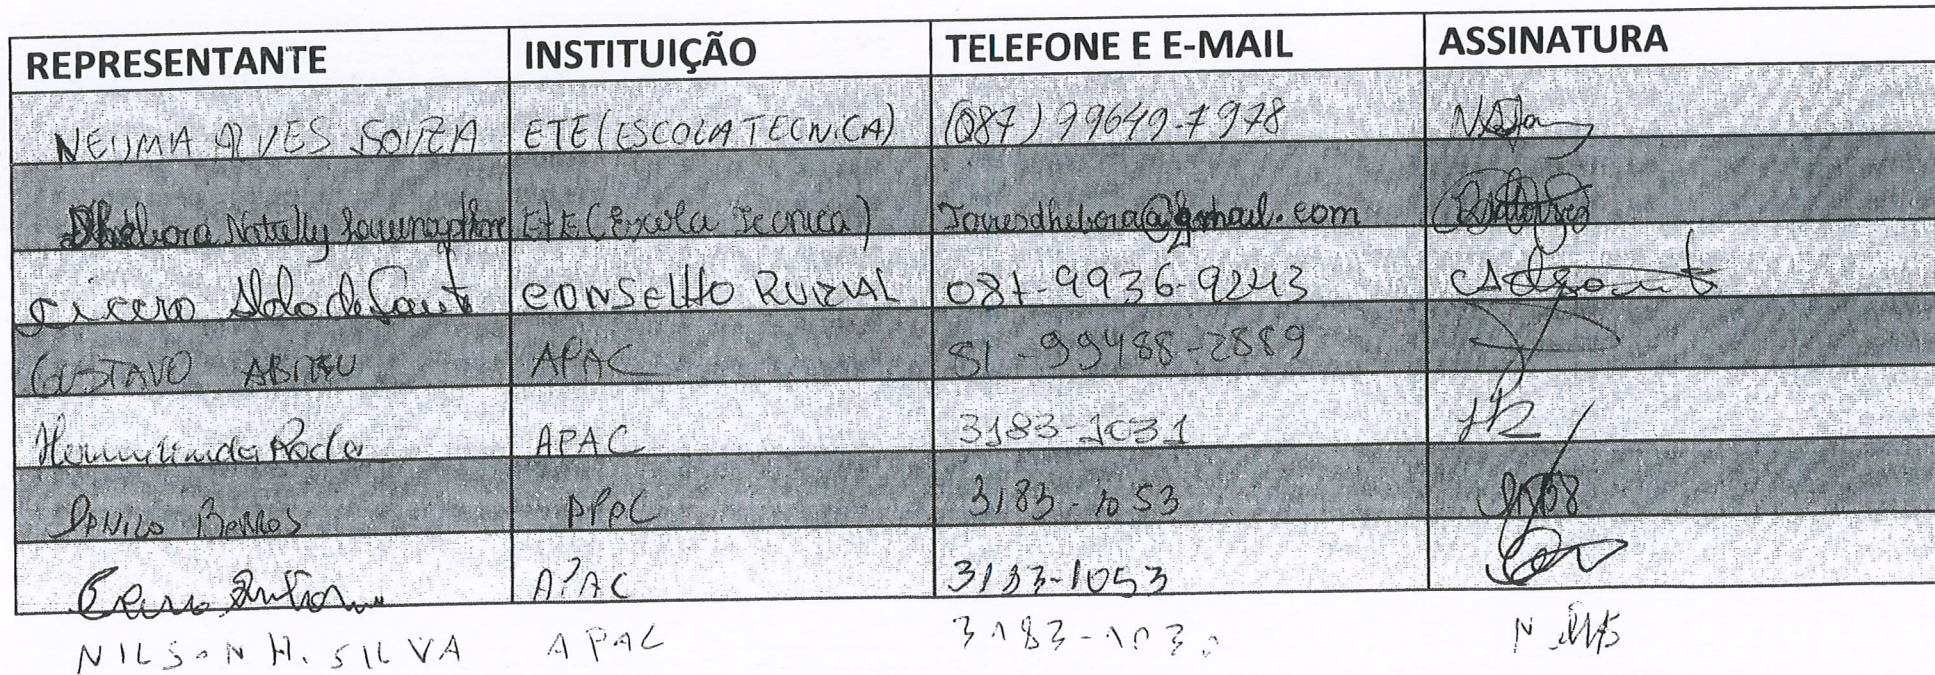 REPRESENTANTE INSTITUIÇÃO TELEFONE E E-MAIL ASSINATURA
NEUMA ALVES SOUZA ETE (ESCOLA TECNICA) (087) 99649-1978
Dhebora Natielly ETE (Escola Tecnica) Tavesdhebora@gmail.com
cicero Aldo de conselho RURAL 087-9936-9243
GUSTAVO ABREU APAC 81-99488-2889
Hermelinda Rocha APAC 3183-1031
DANILO Barros APAC 3183-1053
APAC 3183-1053
NILSON H. SILVA APAC 3183-1030